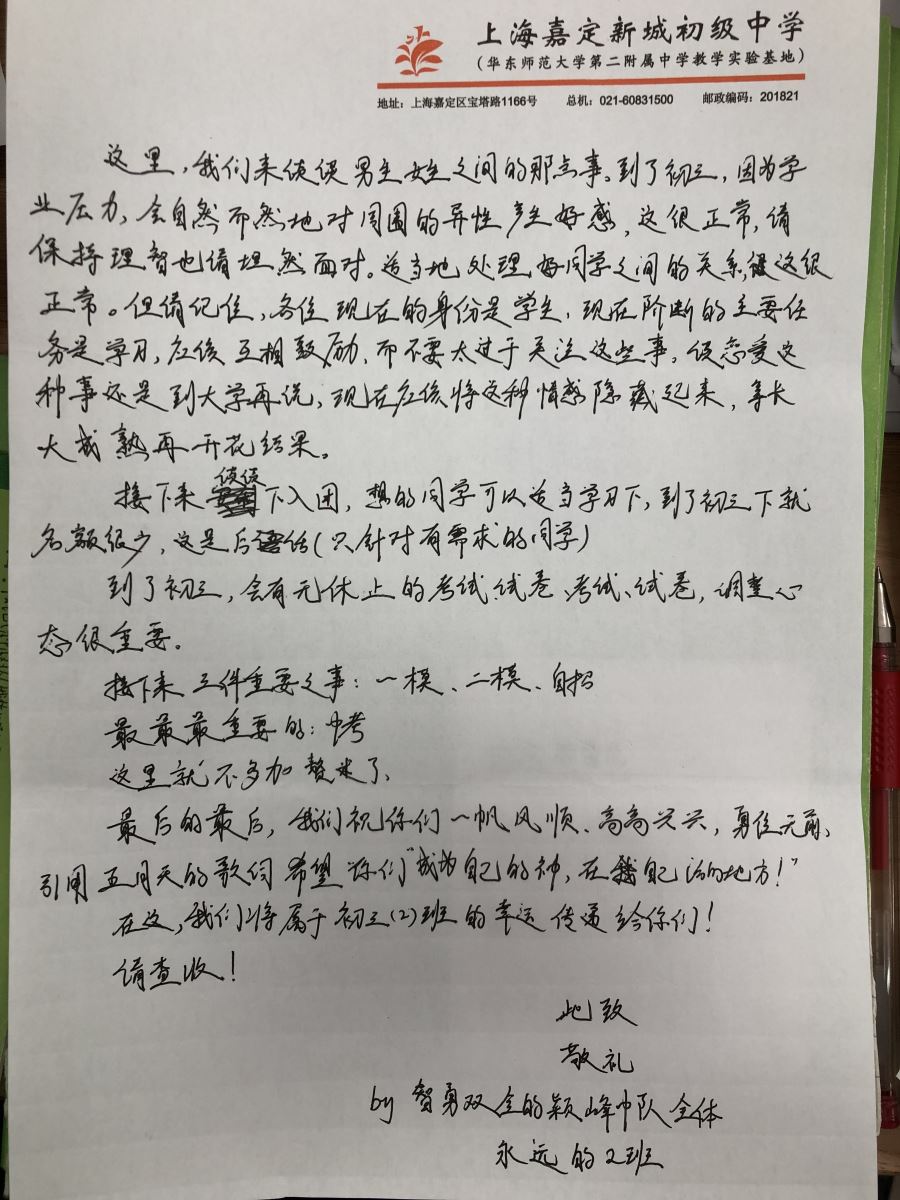 上海嘉定新城初级中学
(华东师范大学第二附属中学教学实验基地)
地址：上海嘉定区宝塔路1166号 总机：021-60831500 邮政编码：201821
这里，我们来谈谈男生女生之间的那点事。到了初三，因为学
业压力，会自然而然地对周围的异性产生好感，这很正常，请
保持理智也请坦然面对。适当地处理好同学之间的关系，这很
正常。但请记住，各位现在的身份是学生，现在阶断的主要任
务是学习，应该互相鼓励，而不要太过于关注这些事。谈恋爱这
种事还是到大学再说，现在应该将这种情感隐藏起来，等长
大成熟再开花结果。
接下来谈谈下入团，想的同学可以适当学习下，到了初三下就
名额很少，这是后话(只针对有需求的同学)
到了初三，会有无休止的考试、试卷、考试、试卷，调整心
态很重要。
接下来三件重要之事：一模、二模、自招
最最最重要的：中考
这里就不多加赘述了、
最后的最后，我们祝你们一帆风顺、高高兴兴，勇往无前、
引用五月天的歌词希望你们“成为自己的神，在自己活的地方！”
在这，我们将属于初三(2)班的幸运传递给你们！
请查收！
此致
敬礼
by 智勇双全的颖峰中队全体
永远的2班